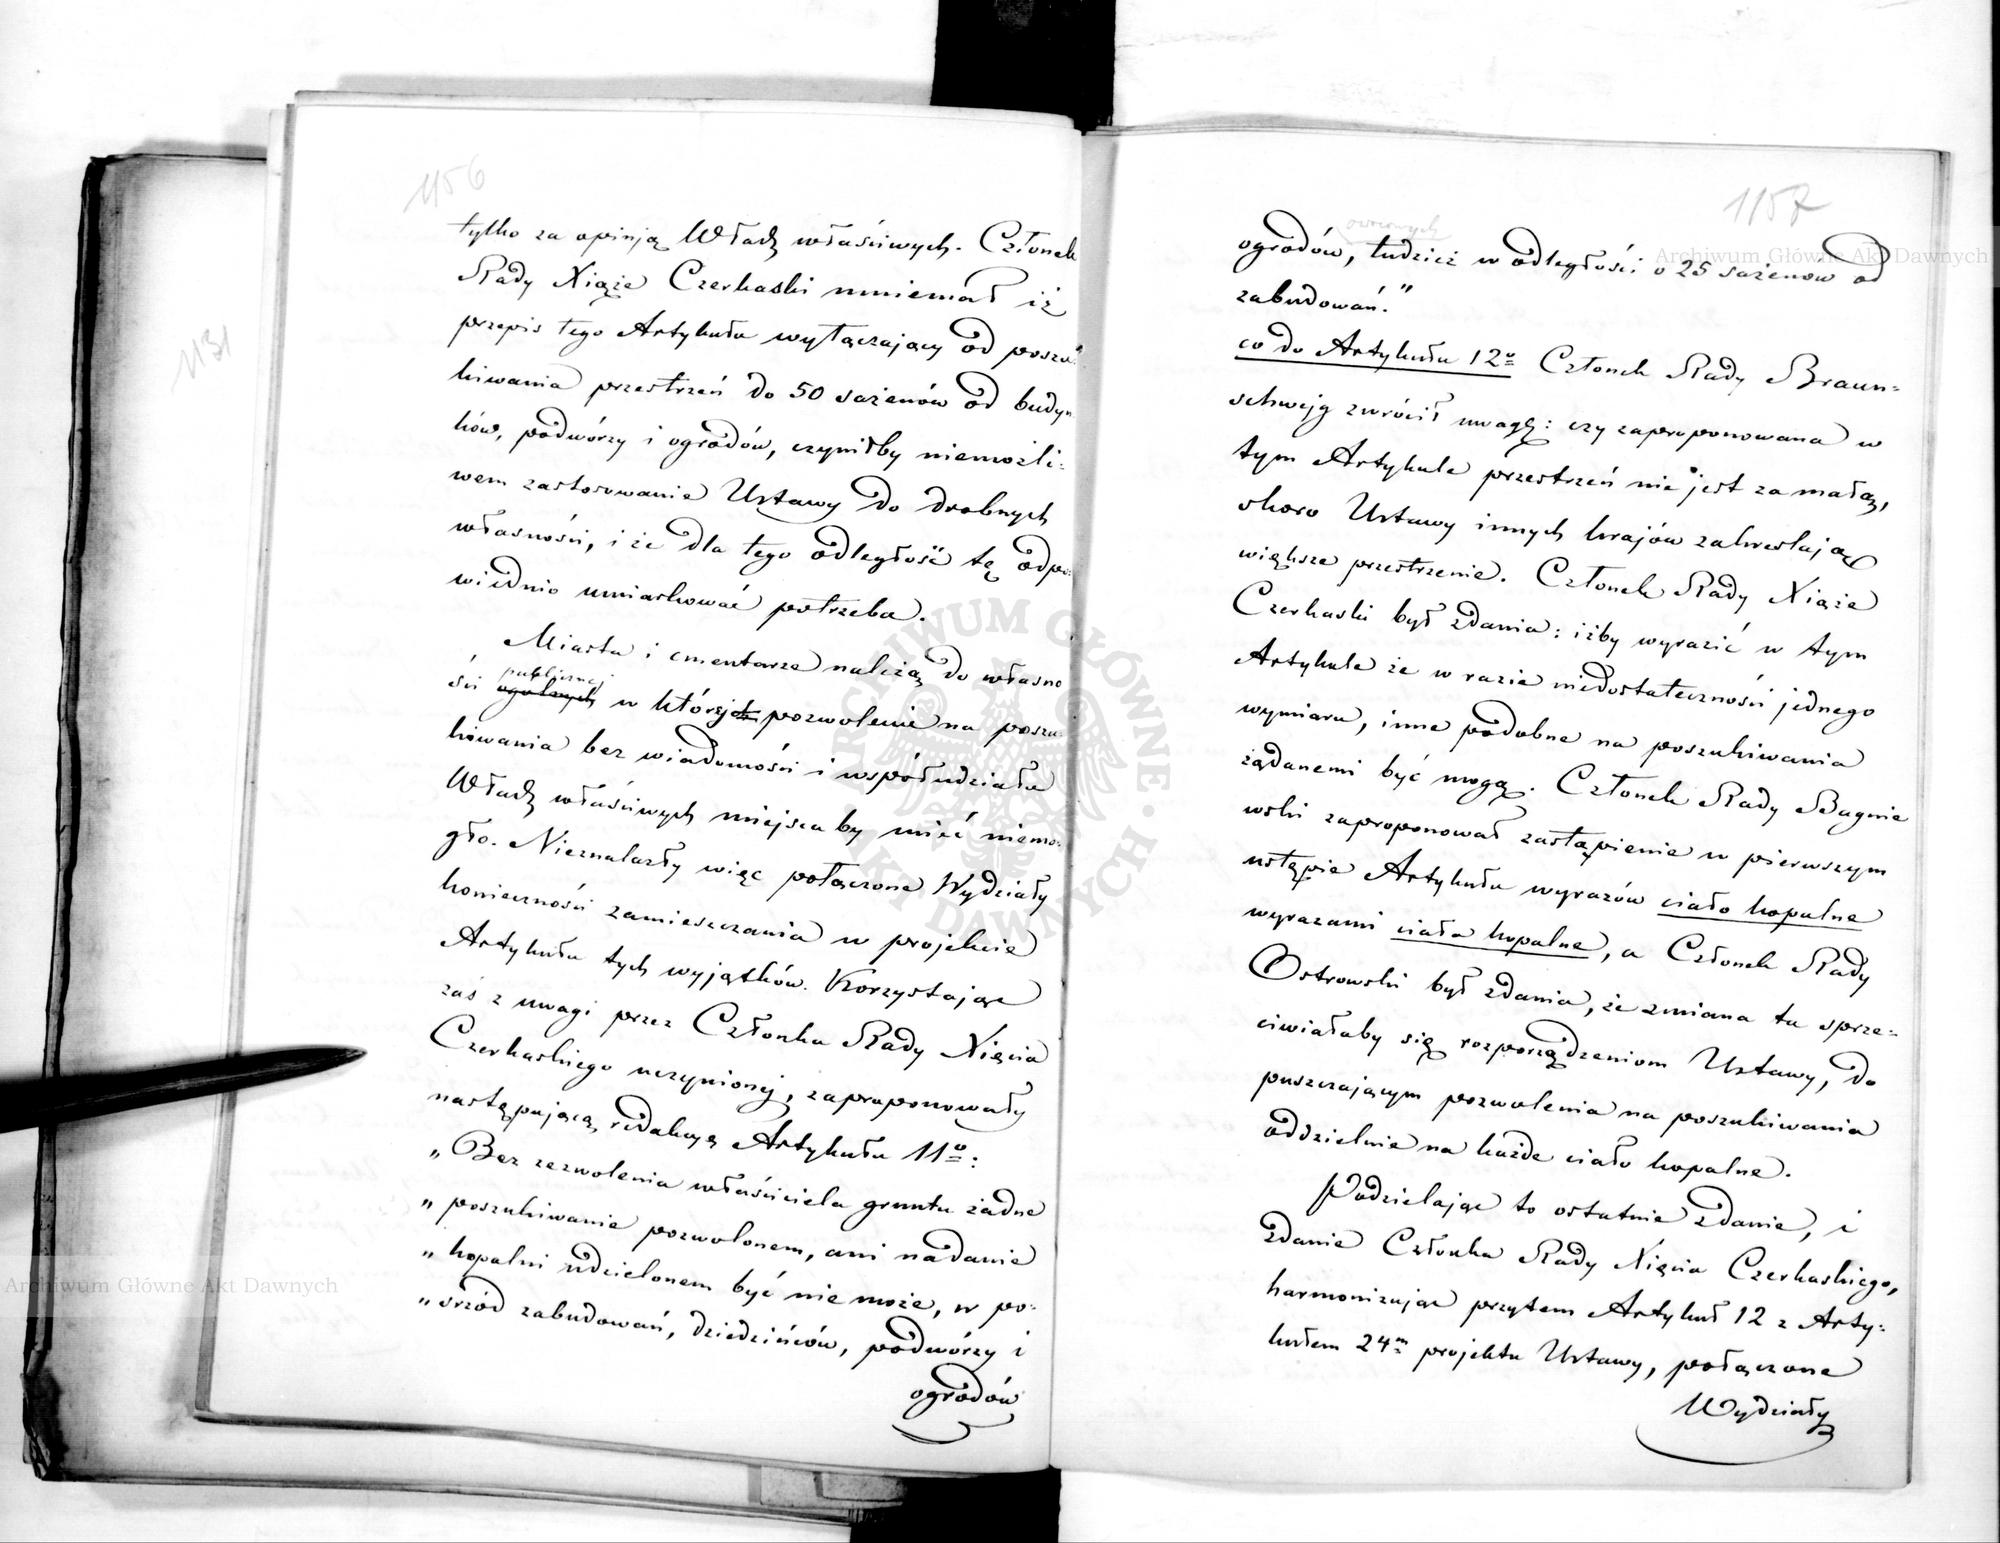 1156
tylko za opinją Władz właściwych. Członek
Rady Xiąże Czerkaski mniemał iż
przepis tego Artykułu wyłączający od poszu-
kiwania przestrzeń do 50 sażenów od budyn
ków, podwórzy i ogrodów, czyniłby niemożli=
wem zastosowanie Ustawy do drobnych
własności, i że dla tego odległość tę odpo=
wiednio umiarkować potrzeba.
Miasta i cmentarze należą do własno
publicznej
ści ogolnych w którejch pozwolenie na poszu=
kiwania bez wiadomości i współudziału
Władz właściwych miejsca by mieć niemo=
gło. Nieznalazły więc połączone Wydziały
konieczności zamieszczania w projekcie
Artykułu tych wyjątków. Korzystając
zaś z uwagi przez Członka Rady Xięcia
Czerkaskiego uczynionej, zaproponowały
następującą redakcyą Artykułu 11º:
„Bez zezwolenia właściciela gruntu żadne
„poszukiwanie pozwolonem, ani nadanie
„kopalni udzielonem być nie może, w po=
„srzód zabudowań, dziedzińców, podwórzy i
ogrodów
1131
1157
owocnych
ogrodów, tudzież w odległości o 25 sażenow od
zabudowań."
co do Artykułu 12º Członek Rady Braun=
schwejg zwrócił uwagę: czy zaproponowana w
tym Artykule przestrzeń nie jest za małą,
skoro Ustawy innych krajów zakreślają
większe przestrzenie. Członek Rady Xiąże
Czerkaski był zdania: iżby wyrazić w tym
Artykule że w razie niedostateczności jednego
wymiaru, inne podobne na poszukiwania
żądanemi być mogą. Członek Rady Bagnie
wski zaproponował zastąpienie w pierwszym
ustępie Artykułu wyrazów ciało kopalne
wyrazami ciała kopalne, a Członek Rady
Ostrowski był zdania, że zmiana ta sprze=
ciwiałaby się rozporządzeniom Ustawy, do
puszczającym pozwolenia na poszukiwania
oddzielnie na każde ciało kopalne.
Podzielając to ostatnie zdanie, i
zdanie Członka Rady Xięcia Czerkaskiego,
harmonizując przytem Artykuł 12 z Arty=
kułem 24m projektu Ustawy, połączone
Wydziały
Archiwum Główne Akt Dawnych
Archiwum Główne Akt Dawnych
ARCHIWUM GŁÓWNE AKT DAWNYCH